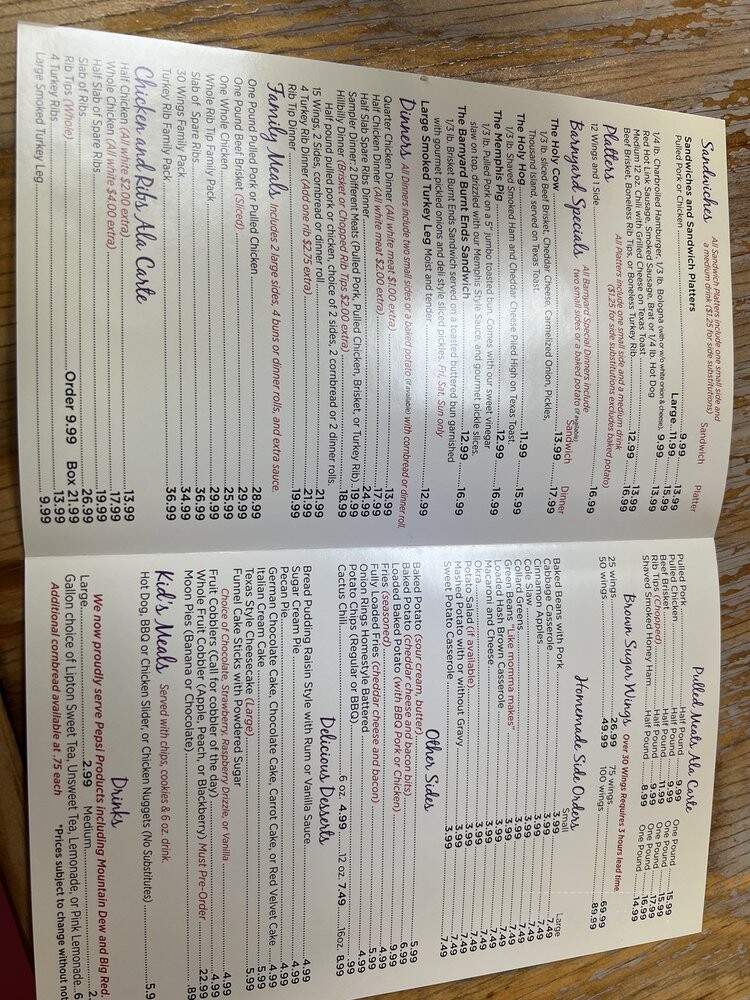 Sandwiches
All Sandwich Platters include one small side and
a medium drink ($1.25 for side substitutions)
Sandwich Platter
Sandwiches and Sandwich Platters
Pulled Pork or Chicken 9.99 13.99
Large 11.99 15.99
1/4 lb. Charbroiled Hamburger, 1/3 lb. Bologna (with or w/o white onion & cheese),
Red Hot Link Sausage, Smoked Sausage, Brat or 1/4 lb. Hot Dog 9.99 13.99
Medium 12 oz. Chili with Grilled Cheese on Texas Toast 13.99
Beef Brisket, Boneless Rib Tips, or Boneless Turkey Rib 12.99 16.99
Platters
All Platters include one small side and a medium drink
($1.25 for side substitutions excludes baked potato)
12 Wings and 1 Side 16.99
Barnyard Specials
All Banyard Special Dinners include
two small sides or a baked potato (if available)
Sandwich Dinner
The Holy Cow 13.99 17.99
1/3 lb. sliced Beef Brisket, Cheddar Cheese, Carmelized Onion, Pickles,
Thousand Island, served on Texas Toast.
The Holy Hog 11.99 15.99
1/3 lb. Shaved Smoked Ham and Cheddar Cheese Piled High on Texas Toast.
The Memphis Pig 12.99 16.99
1/3 lb. Pulled Pork on a 5" jumbo toasted bun. Comes with our sweet vinegar
slaw on top, drizzled with our Memphis Style Sauce, and gourmet pickle slices.
The Banyard Burnt Ends Sandwich 12.99 16.99
1/3 lb. Brisket Burnt Ends Sandwich served on a toasted buttered bun garnished
with gourmet pickled onions and deli style sliced pickles. Fri, Sat, Sun only
Large Smoked Turkey Leg Moist and tender 12.99
Dinners All Dinners include two small sides or a baked potato (if available) with cornbread or dinner roll
Quarter Chicken Dinner (All white meat $1.00 extra) 13.99
Half Chicken Dinner (All white meat $2.00 extra) 17.99
Half Slab Spare Ribs Dinner 24.99
Sampler Dinner: 2 Different Meats (Pulled Pork, Pulled Chicken, Brisket, or Turkey Rib) 19.99
Hillbilly Dinner (Brisket or Chopped Rib Tips $2.00 extra) 18.99
Half pound pulled pork or chicken, choice of 2 sides, 2 cornbread or 2 dinner rolls.
15 Wings, 2 Sides, cornbread or dinner roll 21.99
4 Turkey Rib Dinner (Add one rib $2.75 extra) 21.99
Rib Tip Dinner 19.99
Family Meals Includes 2 large sides, 4 buns or dinner rolls, and extra sauce.
One Pound Pulled Pork or Pulled Chicken 28.99
One Pound Beef Brisket (Sliced) 29.99
One Whole Chicken 25.99
Whole Rib Tip Family Pack 29.99
Slab of Spare Ribs 36.99
30 Wings Family Pack 34.99
Turkey Rib Family Pack 36.99
Chicken and Ribs Ala Carte
Half Chicken (All white $2.00 extra) 13.99
Whole Chicken (All white $4.00 extra) 17.99
Half Slab of Spare Ribs 19.99
Slab of Ribs 26.99
Rib Tips (Whole) Order 9.99 Box 21.99
4 Turkey Ribs 13.99
Large Smoked Turkey Leg 9.99
Pulled Meats Ala Carte
Pulled Pork Half Pound 9.99 One Pound 15.99
Pulled Chicken Half Pound 9.99 One Pound 15.99
Beef Brisket Half Pound 11.99 One Pound 17.99
Rib Tips (Chopped) Half Pound 9.99 One Pound 16.99
Shaved Smoked Honey Ham Half Pound 8.99 One Pound 14.99
Brown Sugar Wings Over 30 Wings Requires 3 hours lead time
25 wings 26.99 75 wings 69.99
50 wings 49.99 100 wings 89.99
Homemade Side Orders
Small Large
Baked Beans with Pork 3.99 7.49
Cabbage Casserole 3.99 7.49
Cinnamon Apples 3.99 7.49
Cole Slaw 3.99 7.49
Collard Greens 3.99 7.49
Green Beans "Like momma makes" 3.99 7.49
Loaded Hash Brown Casserole 3.99 7.49
Macaroni and Cheese 3.99 7.49
Okra 3.99 7.49
Potato Salad (if available) 3.99 7.49
Mashed Potato with or without Gravy 3.99 7.49
Sweet Potato Casserole 3.99 7.49
Other Sides
Baked Potato (sour cream, butter) 5.99
Baked Potato (cheddar cheese and bacon bits) 6.99
Loaded Baked Potato (with BBQ Pork or Chicken) 9.99
Fries (seasoned) 4.99
Fully Loaded Fries (cheddar cheese and bacon) 5.99
Onion Rings Homestyle Battered 4.99
Potato Chips (Regular or BBQ) .99
Cactus Chili 6 oz. 4.99 12 oz. 7.49 16oz. 8.99
Delicious Desserts
Bread Pudding Raisin Style with Rum or Vanilla Sauce 4.99
Sugar Cream Pie 4.99
Pecan Pie 4.99
German Chocolate Cake, Chocolate Cake, Carrot Cake, or Red Velvet Cake 4.99
Italian Cream Cake 5.99
Texas Style Cheesecake (Large) 5.99
Funnel Cake Sticks with Powdered Sugar
Choice of Chocolate, Strawberry, Raspberry Drizzle, or Vanilla 4.99
Fruit Cobblers (Call for cobbler of the day) 4.99
Whole Fruit Cobbler (Apple, Peach, or Blackberry) Must Pre-Order 22.99
Moon Pies (Banana or Chocolate) .89
Kid's Meals Served with chips, cookies & 6 oz. drink
Hot Dog, BBQ or Chicken Slider, or Chicken Nuggets (No Substitutes) 5.9
Drinks
We now proudly serve Pepsi Products including Mountain Dew and Big Red.
Large 2.99 Medium 2.
Gallon choice of Lipton Sweet Tea, Unsweet Tea, Lemonade, or Pink Lemonade 6
Additional cornbread available at .75 each
*Prices subject to change without not